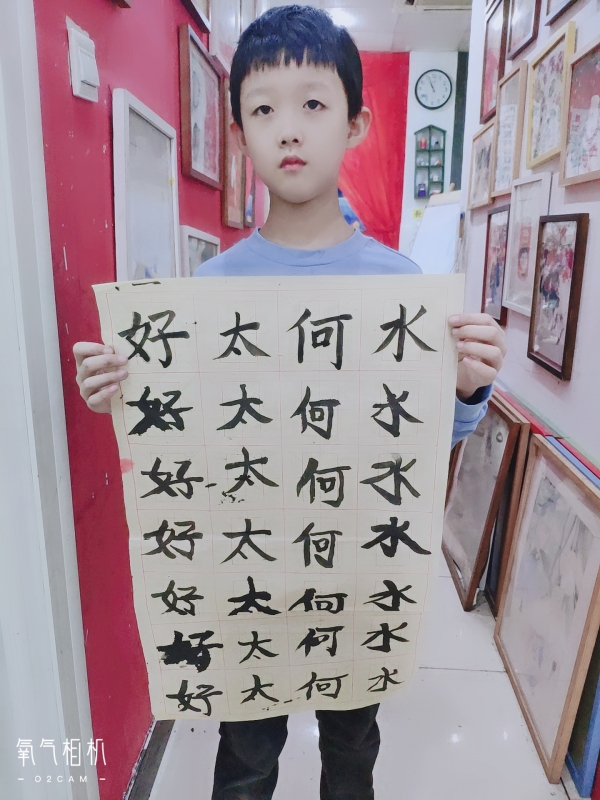 好 太 何 水
好 太 何 水
好 太 何 水
好 太 何 水
好 太 何 水
好 太 何 水
好 太 何 水
氧气相机
— O2CAM —